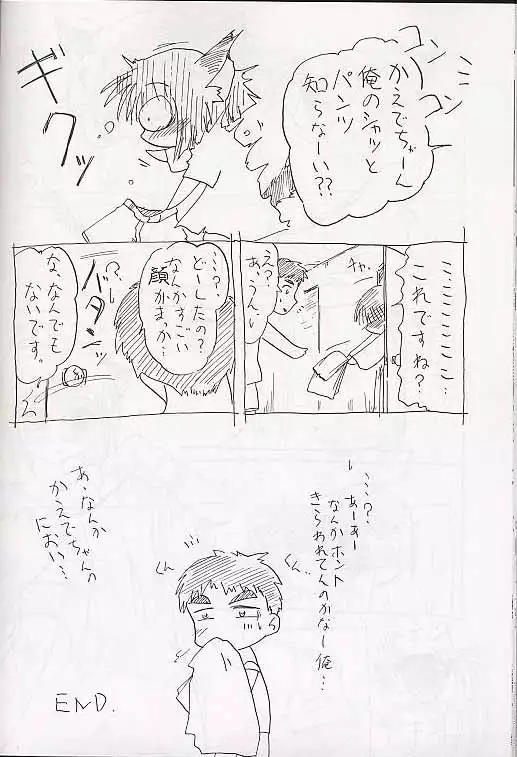 コンコン
かえでちゃーん
俺のシャツと
パンツ
知らなーい??
ギクッ
……………
これですね?
ガチャ
え?
あ、うん
…?
どーしたの?
なんかすごい
顔がまっか…
バタンッ
な、なんでも
ないです。
…?
あーあー
なんかホント
きらわれてんのかなー俺…
くん…
くん
あ、なんか
かえでちゃんの
におい…
END.